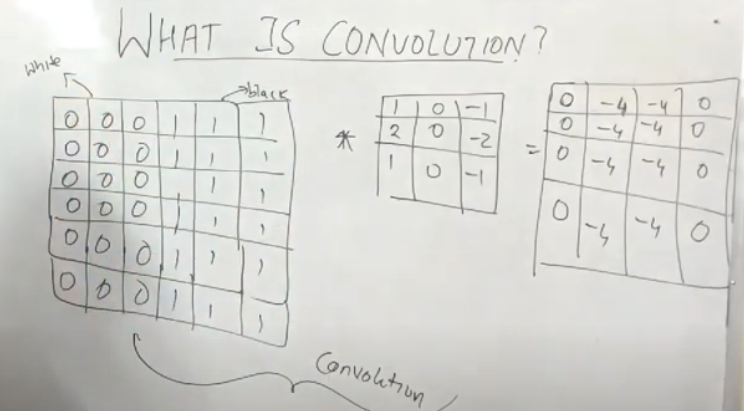 WHAT IS CONVOLUTION?
white
black
0 0 0 1 1 1
0 0 0 1 1 1
0 0 0 1 1
0 0 0 1 1 1
0 0 0 1 1 1
0 0 0 1 1 1
*
1 0 -1
2 0 -2
1 0 -1
=
0 -4 -4 0
0 -4 -4 0
0 -4 -4 0
0 -4 -4 0
Convolution